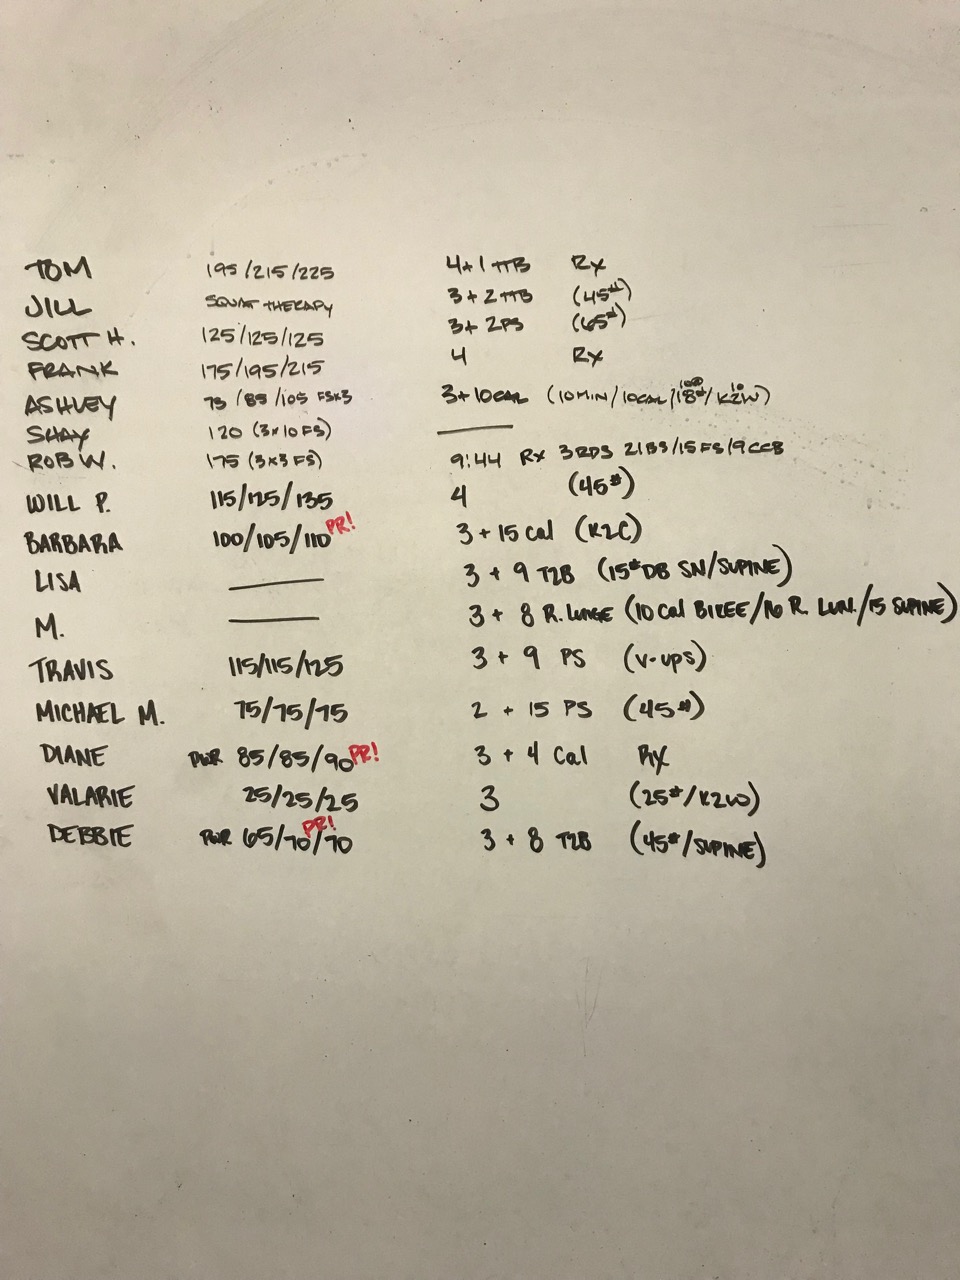 TOM 195/215/225 4+1 TTB Rx
JILL SQUAT THERAPY 3+2 TTB (45#)
SCOTT H. 125/125/125 3+2PS (65#)
FRANK 175/195/215 4 Rx
ASHLEY 75/85/105 FSX3 3+10CAL (10MIN/10CAL/ /K2W)
SHAY 120 (3x10 FS)
ROB W. 175 (3x3 FS) 9:44 Rx 3RDS 21BS/15FS/9
WILL P. 115/125/135 4 (45#)
BARBARA 100/105/110 PR! 3 + 15 Cal (K2C)
LISA 3 + 9 T2B (15# DB SN/SUPINE)
M. 3 + 8 R. LUNGE (10 Cal /10 R. LUN./15 SUPINE)
TRAVIS 115/115/125 3 + 9 PS (V-UPS)
MICHAEL M. 75/75/75 2 + 15 PS (45#)
DIANE PWR 85/85/90 PR! 3 + 4 Cal RX
VALARIE 25/25/25 3 (25#/K2W)
DEBBIE PWR 65/70/70 PR! 3 + 8 T2B (45#/SUPINE)